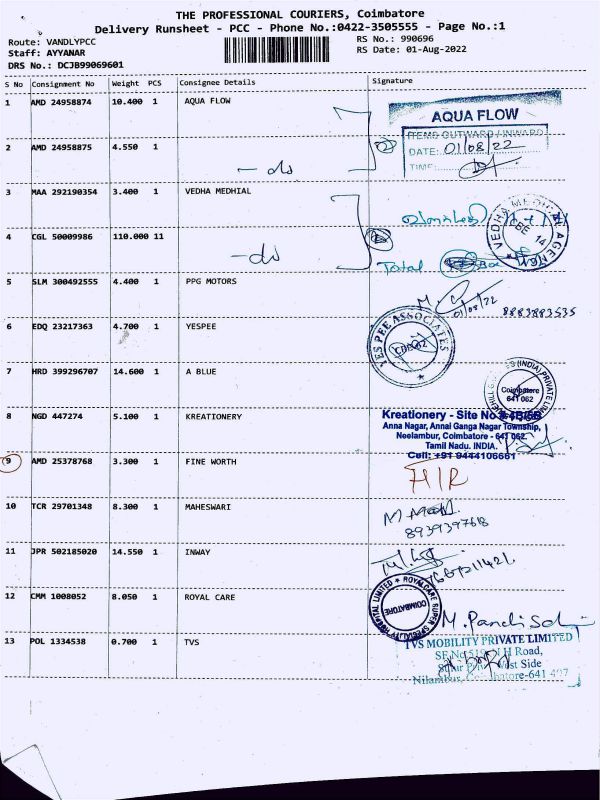 THE PROFESSIONAL COURIERS, Coimbatore
Delivery Runsheet - PCC - Phone No.:0422-3505555 - Page No.:1
Route: VANDLYPCC
RS No.: 990696
Staff: AYYANAR
RS Date: 01-Aug-2022
DRS No.: DCJB99069601
S No Consignment No Weight PCS Consignee Details Signature
1 AMD 24958874 10.400 1 AQUA FLOW
AQUA FLOW
ITEMS OUTWARD / INWARD
DATE: 01/08/22
TIME:
2 AMD 24958875 4.550 1
- do
3 MAA 292190354 3.400 1 VEDHA MEDHIAL
4 CGL 50009986 110.000 11
- do
Total
5 SLM 300492555 4.400 1 PPG MOTORS
01/08/22
8883883535
6 EDQ 23217363 4.700 1 YESPEE
YES PEE ASSOCIATES
7 HRD 399296707 14.600 1 A BLUE
(INDIA) PRIVATE
Coimbatore
641 062
8 NGD 447274 5.100 1 KREATIONERY
Kreationery - Site No
Anna Nagar, Annai Ganga Nagar Township,
Neelambur, Coimbatore - 641 062.
Tamil Nadu. INDIA.
Cell: +91 9444106661
9 AMD 25378768 3.300 1 FINE WORTH
10 TCR 29701348 8.300 1 MAHESWARI
8939397618
11 JPR 502185020 14.550 1 INWAY
12 CMM 1008052 8.050 1 ROYAL CARE
ROYAL CARE SUPER SPECIALITY HOSPITAL LIMITED
COIMBATORE
13 POL 1334538 0.700 1 TVS
TVS MOBILITY PRIVATE LIMITED
H Road,
West Side